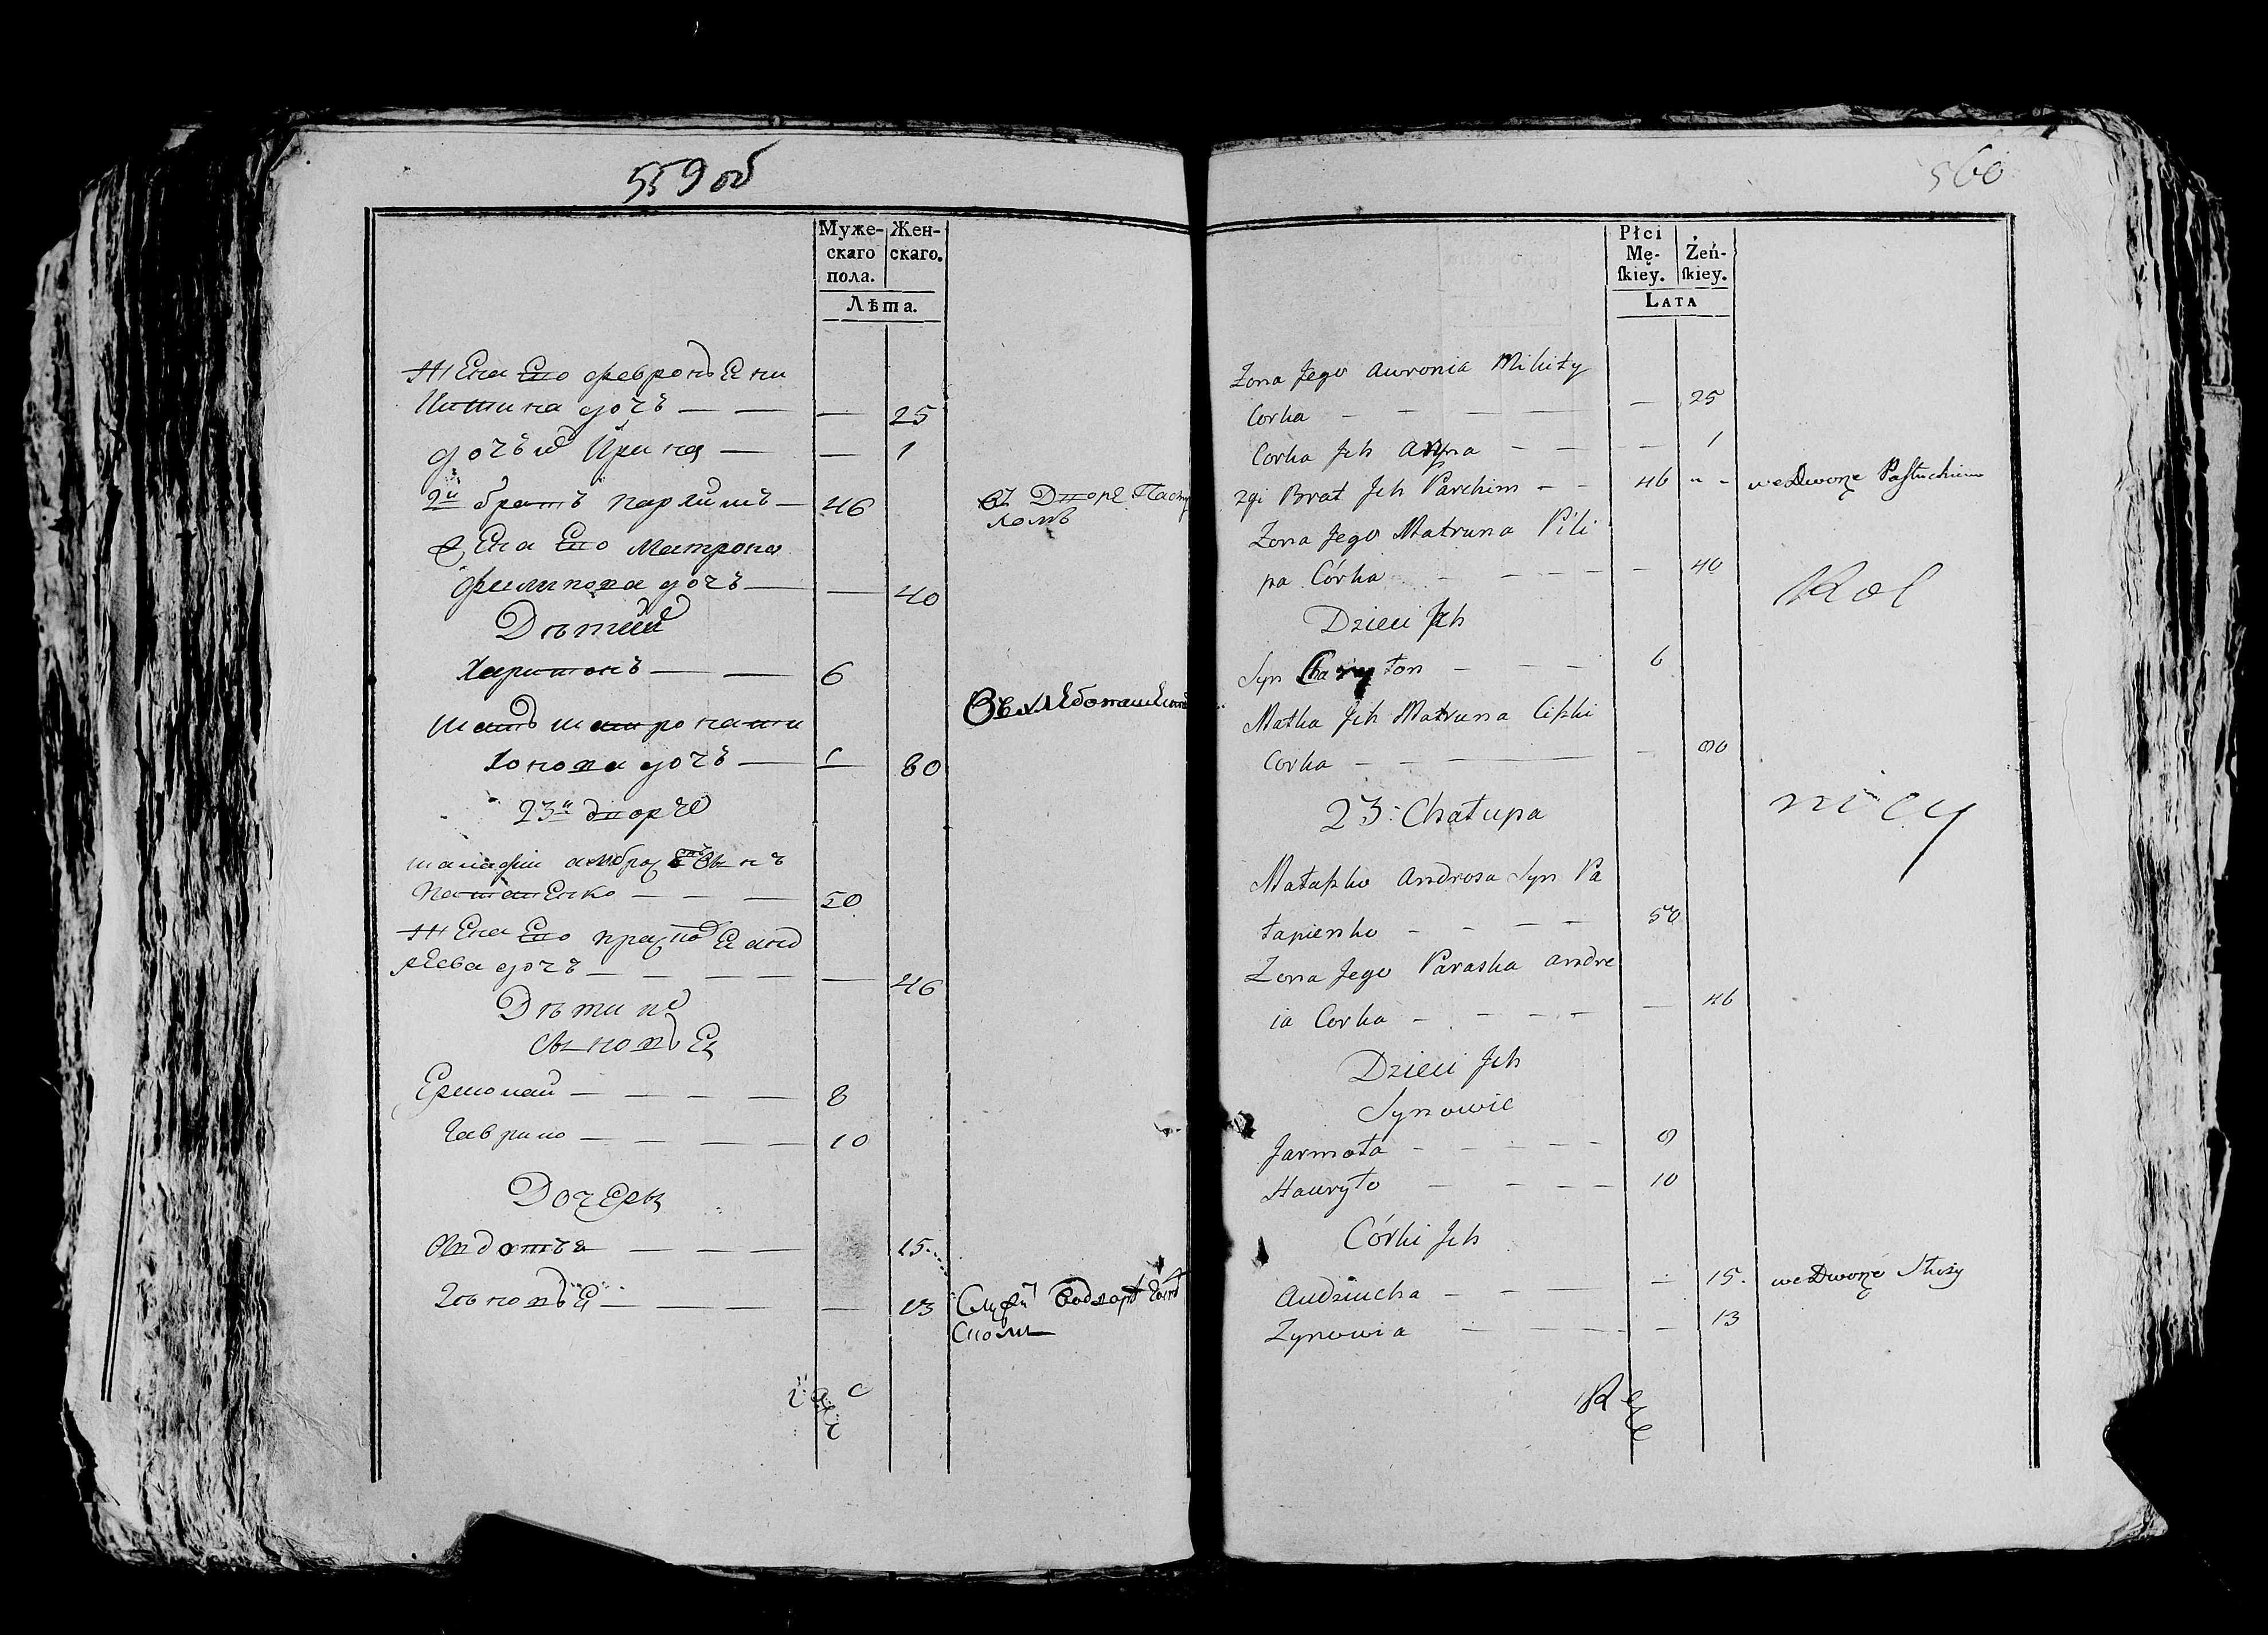 559об
Муже- Жен-
скаго скаго.
пола.
Лѣта.
Жена Его февронъЕ ни
китина дочъ — — — 25
дочъ их Ирина — — 1
2й братъ пархимъ — 46 въ Дворе Пасту
хомъ
жЕна Ево Матрона
филипова дочъ — — 40
Дѣти их
харитонъ — — 6
мать матрона ти
хонова дочъ — — 80
23й дворъ
малафи амброс Сынъ
патапЕнко — — — 50
ЖЕна Ево прасковЕ анд
рЕева дочъ — — — — 46
Дѣти их
сыновЕ
Ермолай — — — — 8
гаврило — — — — 10
ДочЕри
Овдотья — — — 15
ЗѣновъЕ — — — — — 13
560
Płci
Mę- Żeń-
ſkiey. ſkiey.
LATA
Zona Jego Auronia Mikity
Corka — — — — — 25
Corka Jch — — — 1
2gi Brat Jch Parchim — — 46 " – we Dworze Paſtuchiem
Zona Jego Matruna Pili
pa Córka — — — — — 40
Rol
Dzieci Jch
Syn Charyton — — — 6
Matka Jch Matruna Ciſzki
Corka — — — — 80
23: Chałupa
nicy
Małaſzko Androsa Syn Pa
tapienko — — — — 50
Zona Jego Paraska Andre
ia Corka — — — — — 46
Dzieci Jch
Synowie
Jarmoła — — — — 8
Hauryło — — — — 10
Córki Jch
Audziucha — — — — 15. we Dworze Służy
Zynowia — — — — — 13